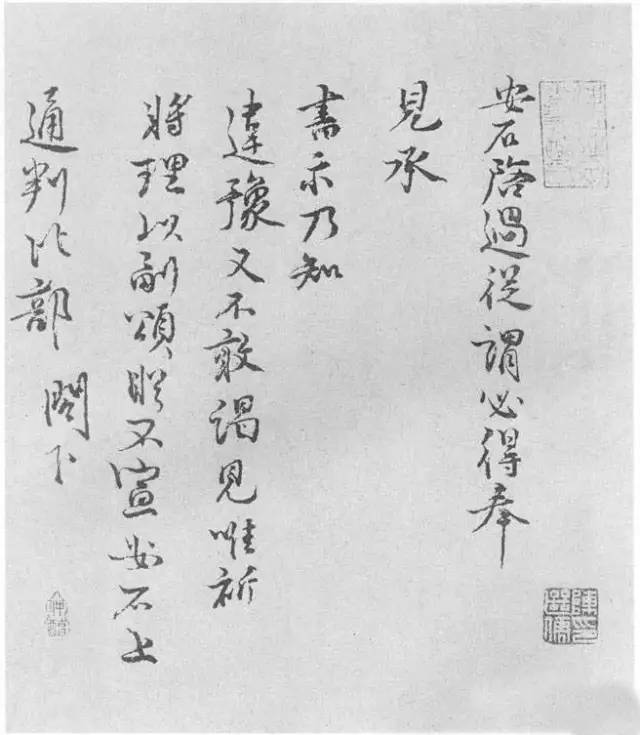 安石啓過從謂必得奉
見承
書示乃知
違豫又不敢謁見唯祈
將理以副頌眷不宣安石上
通判比部 閣下